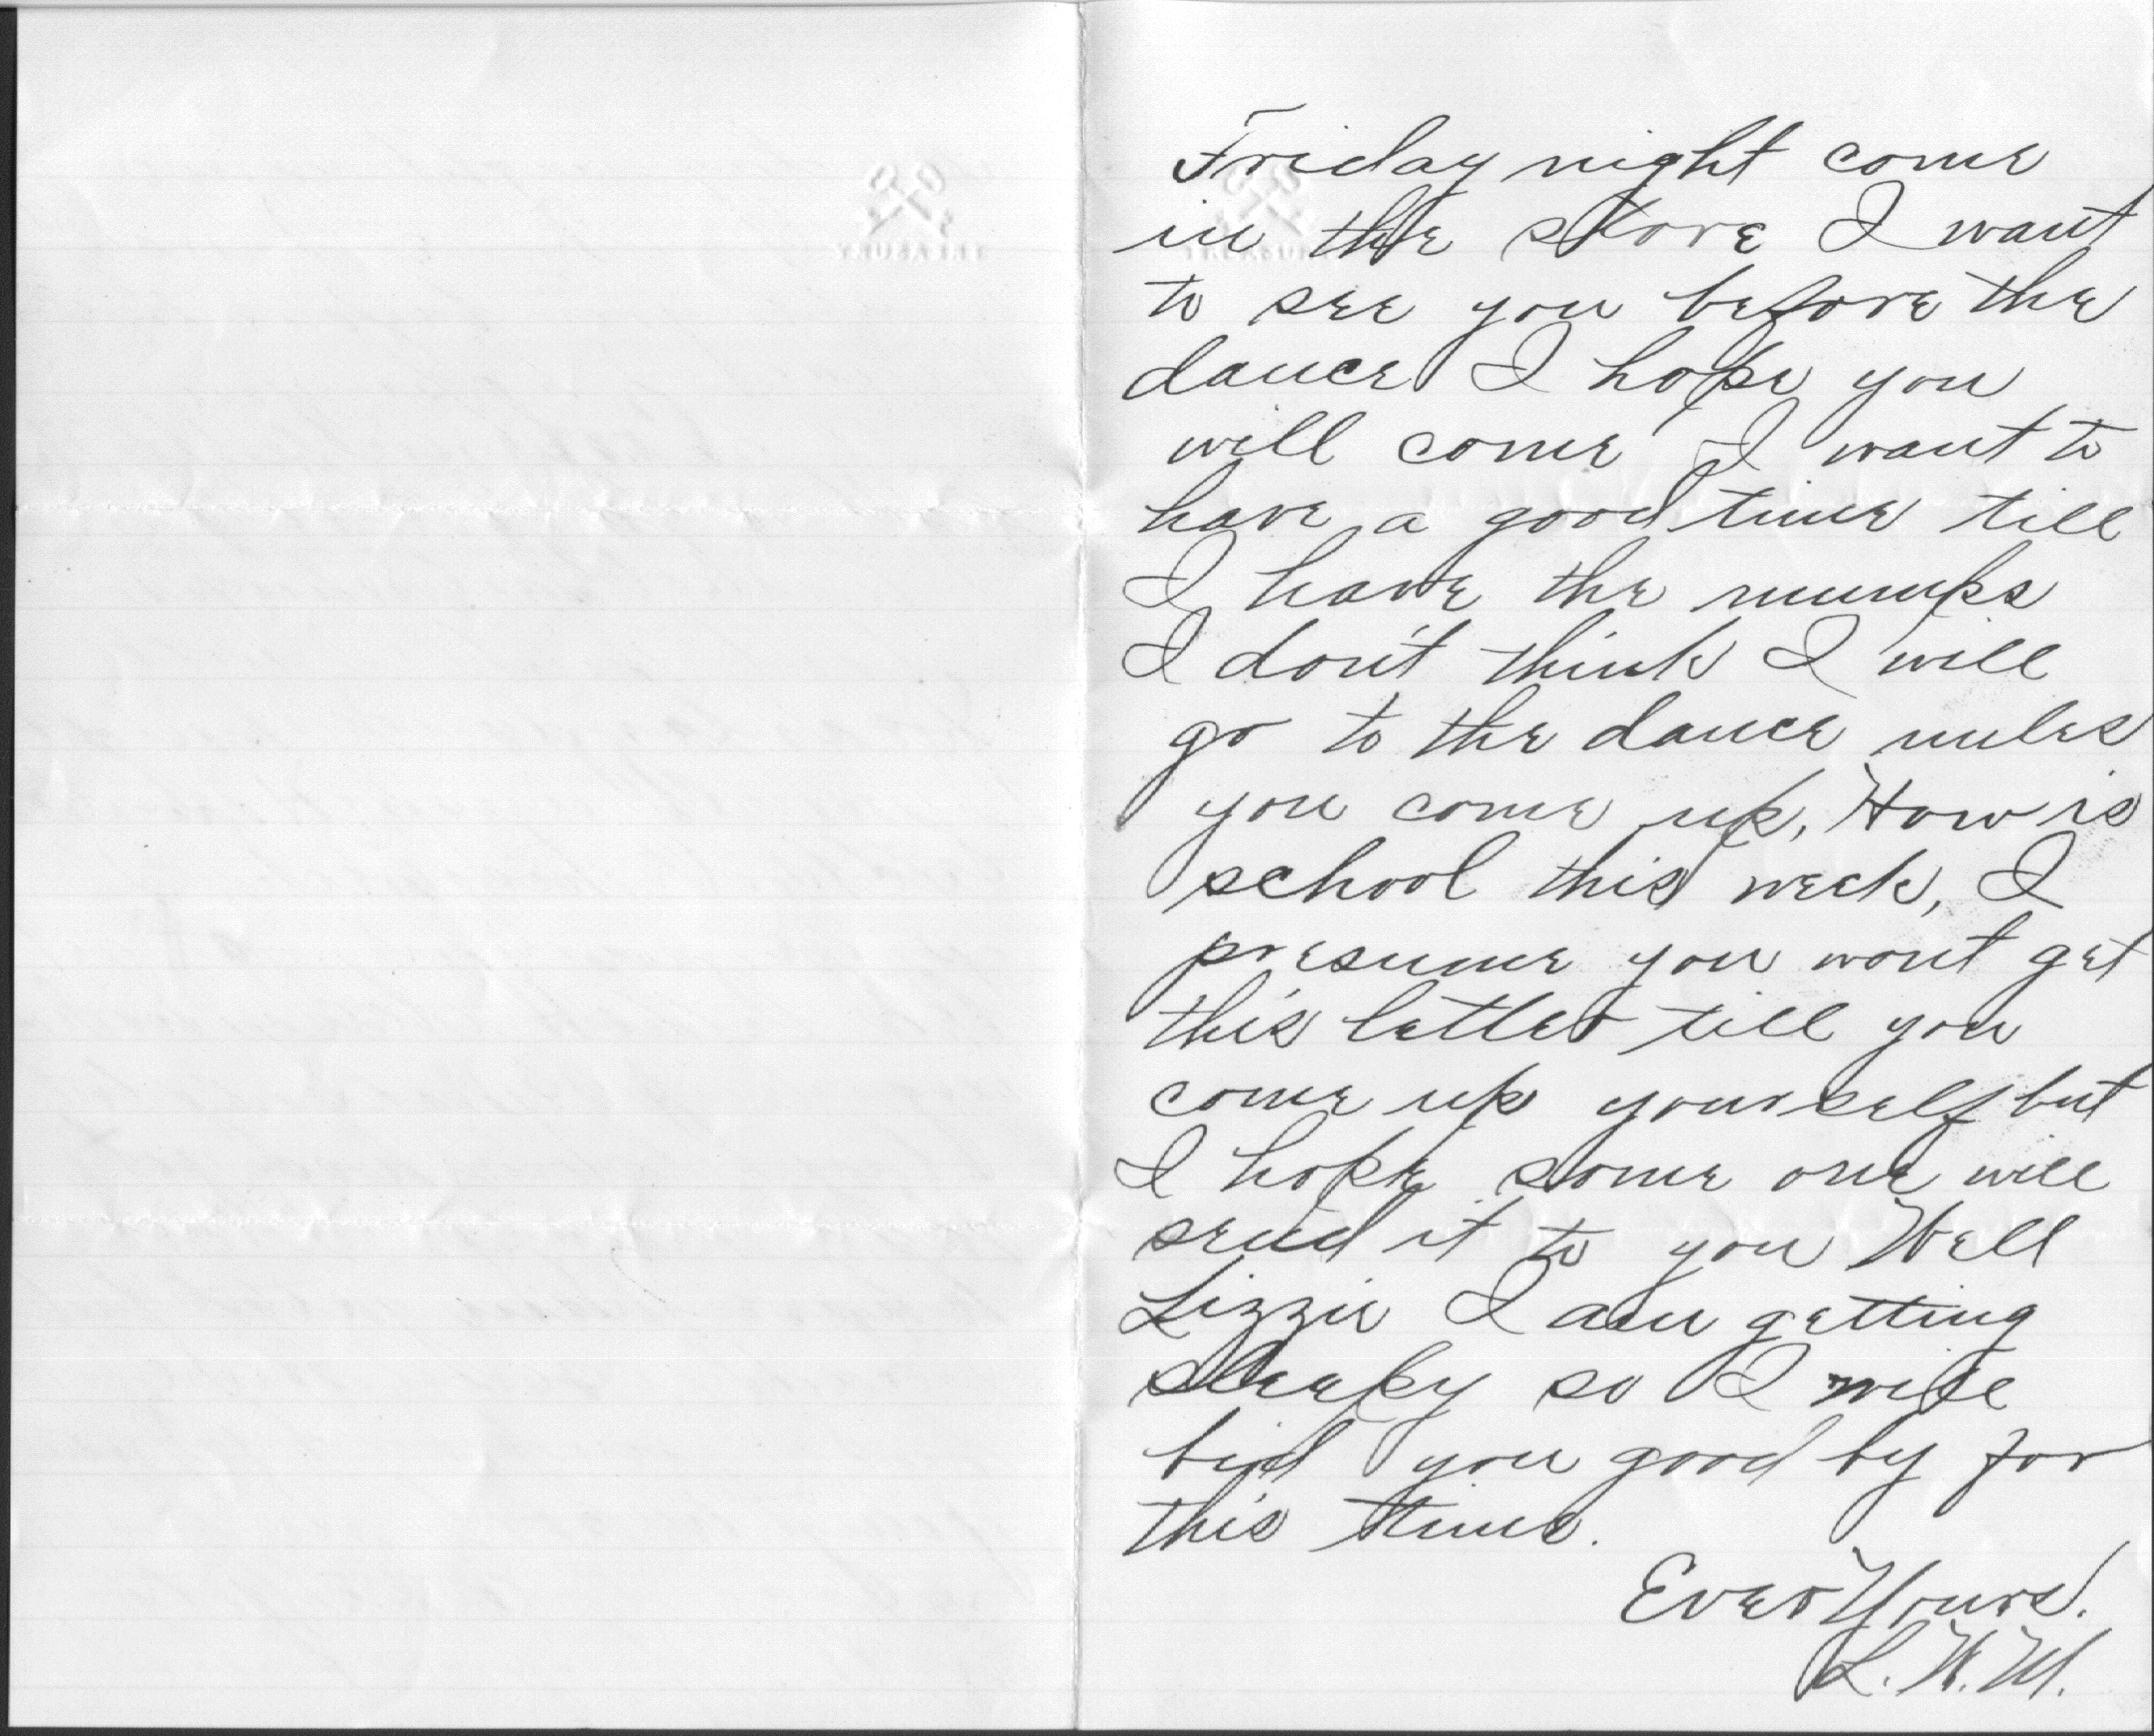 TREASURY
Friday night come
in the store I want
to see you before the
dance I hope you
will come I want to
have a good time till
I have the mumps
I don't think I will
go to the dance unles
you come up, How is
school this week, I
presume you wont get
this letter till you
come up yourself but
I hope some one will
send it to you Well
Lizzie I am getting
sleepy so I will
bid you good by for
this time.
Ever Yours.
L. W. M.